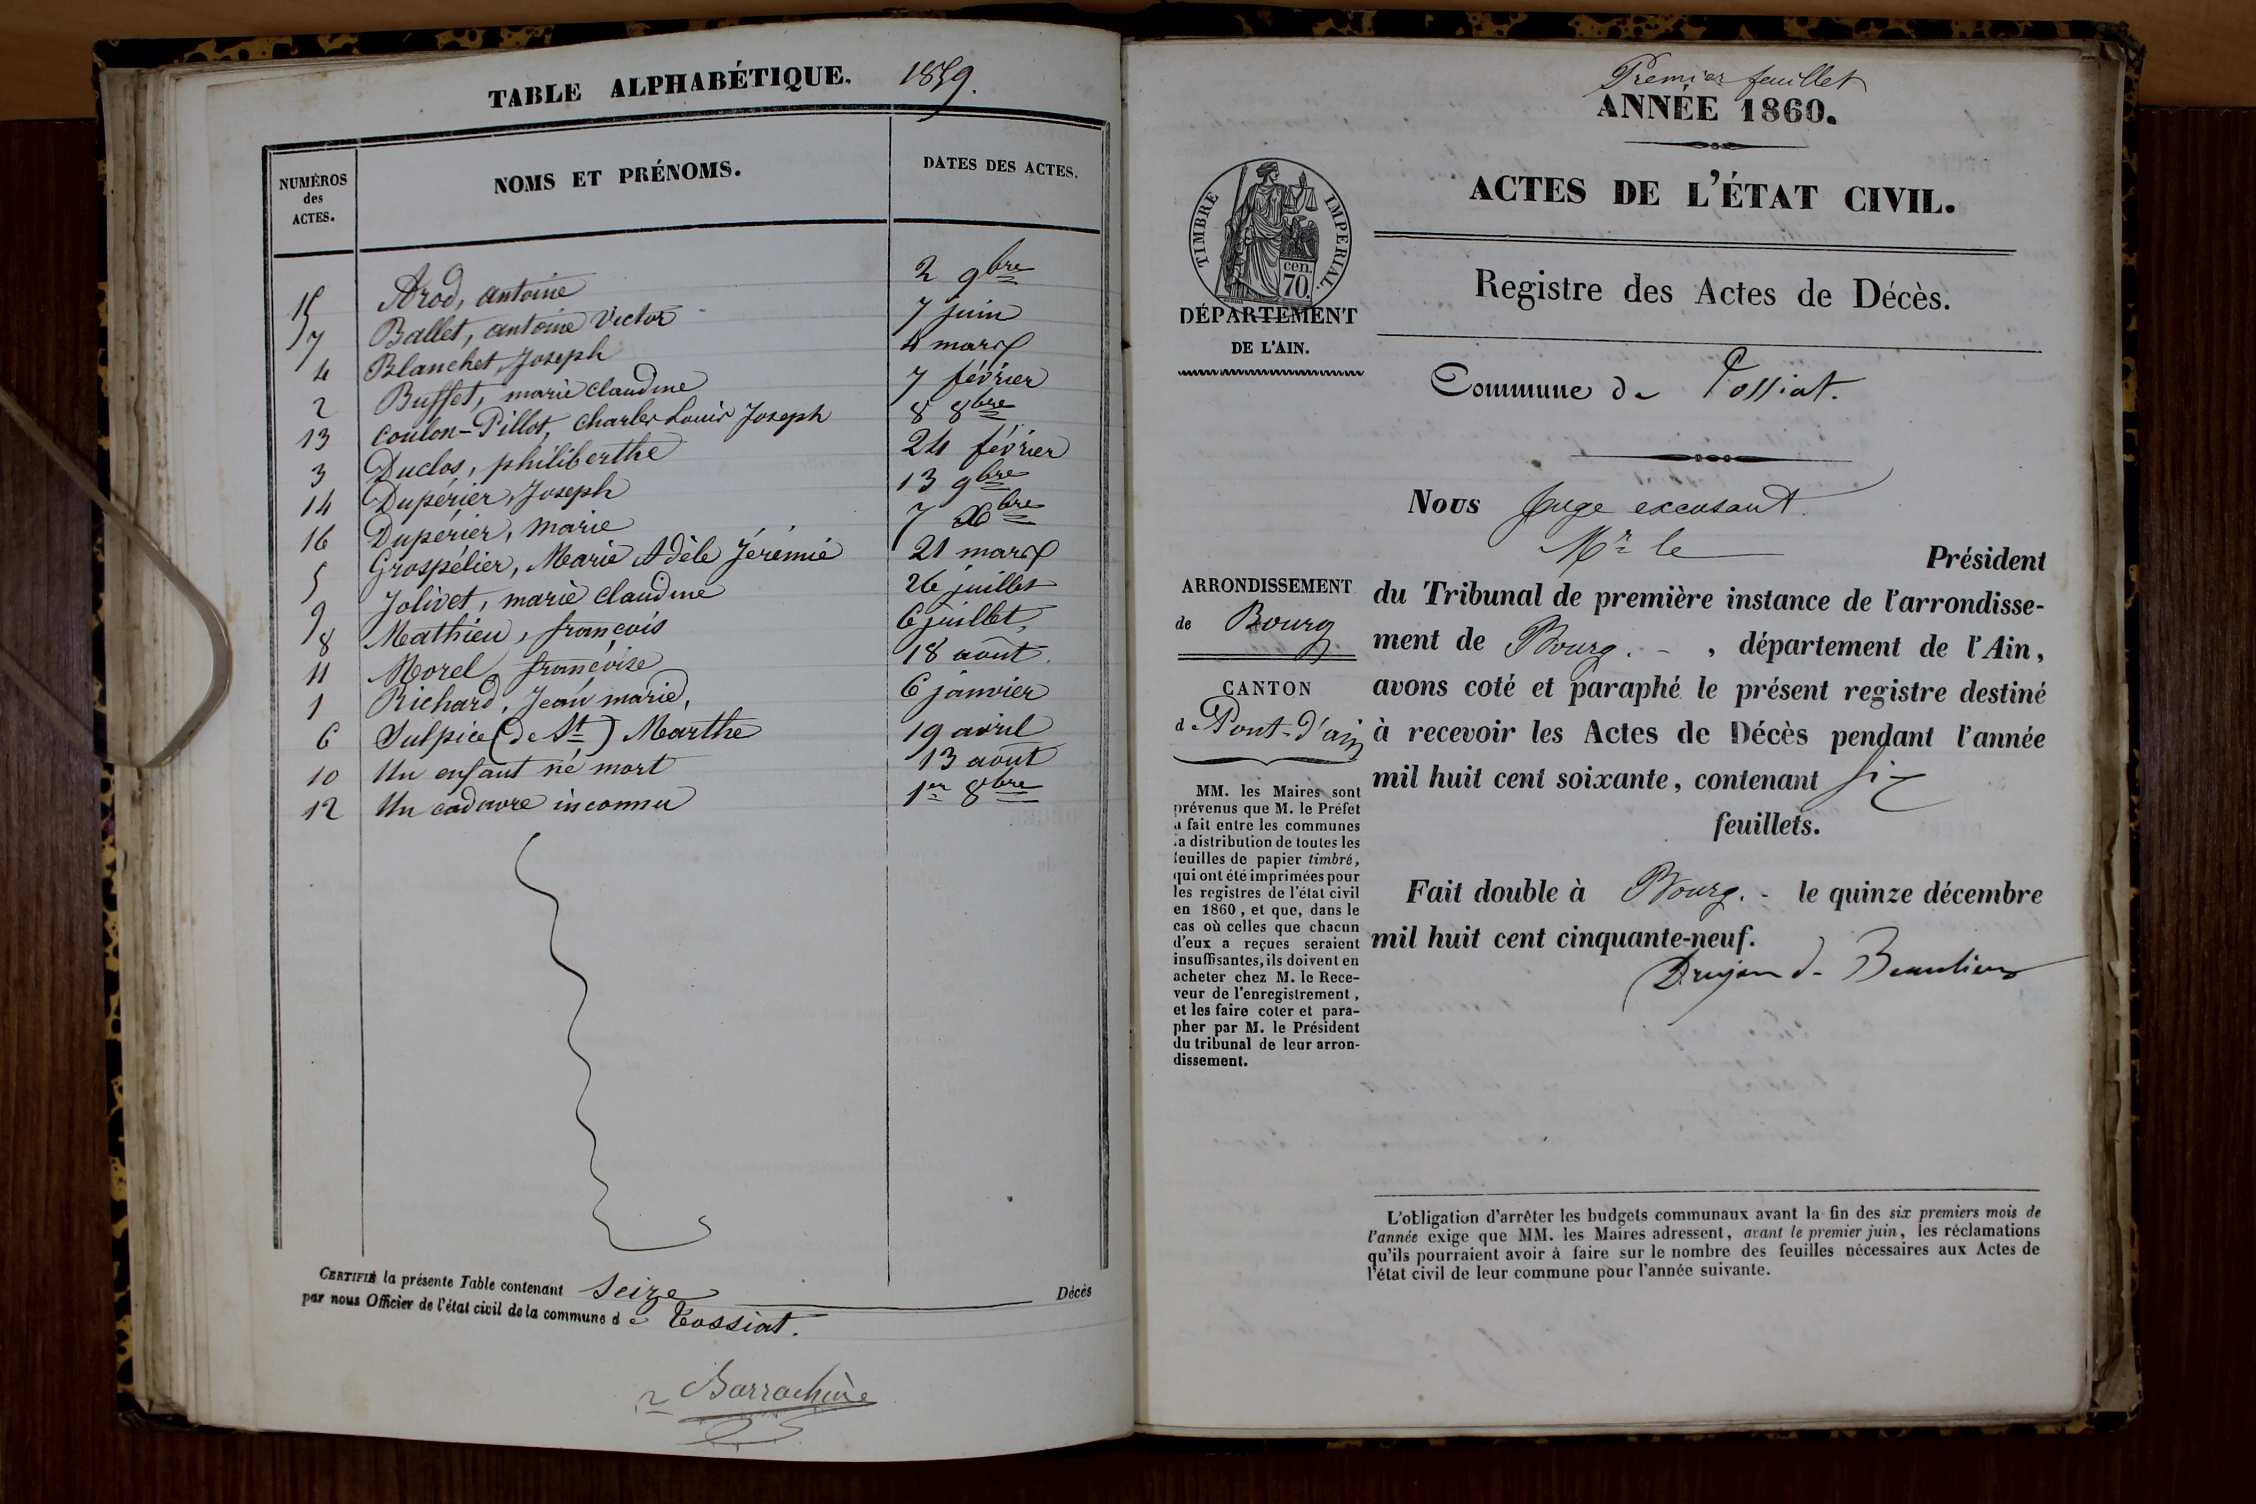 TABLE ALPHABÉTIQUE. 1859.
NUMÉROS des ACTES. NOMS ET PRÉNOMS. DATES DES ACTES.
15 Arod, antoine 2 9bre
7 Ballet, antoine Victor 7 juin
4 Blanchet, Joseph 4 mars
2 Buffet, marie claudine 7 février
13 Coulon-Pillot, Charles Louis Joseph 8 8bre
3 Duclos, philiberthe 24 février
14 Dupérier, Joseph 13 9bre
16 Dupérier, marie 7 Xbre
5 Grospélier, Marie Adèle Jérémie 21 mars
9 Jolivet, marie claudine 26 juillet
8 Mathieu, françois 6 juillet,
11 Morel, françoise 18 août.
1 Richard, Jean marie, 6 janvier
6 Sulpice (de St) Marthe 19 avril
10 Un enfant né mort 13 août
12 Un cadavre inconnu 1er 8bre
CERTIFIÉ la présente Table contenant Seize Décès
par nous Officier de l'état civil de la commune de Tossiat.
Barrachin
Premier feuillet
ANNÉE 1860.
ACTES DE L'ÉTAT CIVIL.
TIMBRE IMPÉRIAL.
cen.
70.
DÉPARTEMENT
DE L'AIN.
Registre des Actes de Décès.
Commune de Tossiat.
Nous Juge excusant
Mr le Président
du Tribunal de première instance de l'arrondisse-
ment de Bourg. - , département de l'Ain,
avons coté et paraphé le présent registre destiné
à recevoir les Actes de Décès pendant l'année
mil huit cent soixante, contenant six
feuillets.
Fait double à Bourg. - le quinze décembre
mil huit cent cinquante-neuf.
Drujon de Beaulieu
ARRONDISSEMENT
de Bourg
CANTON
de Pont-d'ain
MM. les Maires sont
prévenus que M. le Préfet
a fait entre les communes
la distribution de toutes les
feuilles de papier timbré,
qui ont été imprimées pour
les registres de l'état civil
en 1860, et que, dans le
cas où celles que chacun
d'eux a reçues seraient
insuffisantes, ils doivent en
acheter chez M. le Rece-
veur de l'enregistrement,
et les faire coter et para-
pher par M. le Président
du tribunal de leur arron-
dissement.
L'obligation d'arrêter les budgets communaux avant la fin des six premiers mois de
l'année exige que MM. les Maires adressent, avant le premier juin, les réclamations
qu'ils pourraient avoir à faire sur le nombre des feuilles nécessaires aux Actes de
l'état civil de leur commune pour l'année suivante.